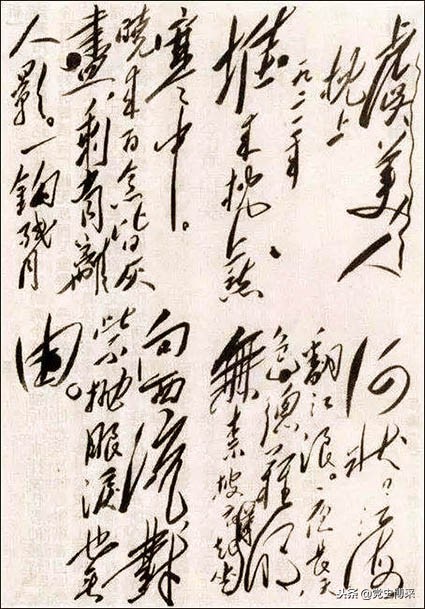 虞美人
枕上
一九二一年
堆来枕上愁
何状，江海
翻江浪。夜长天
色总难明，
無奈披衣起坐
寒中。
晓来百念皆灰
盡，剩有離
人影。一鈎残月
向西流，對
此不抛眼泪也无
由。
头条@党史博采